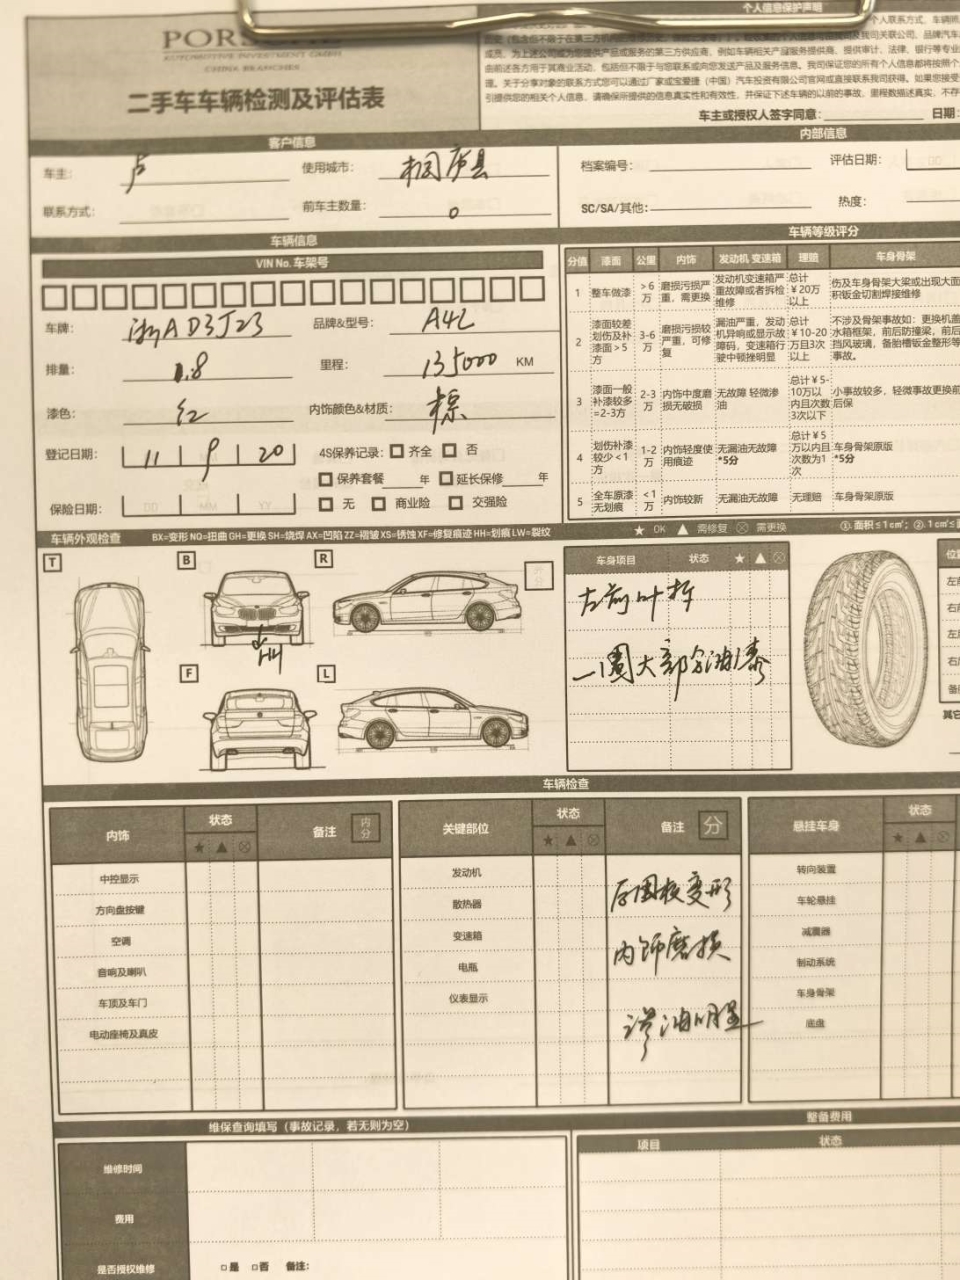 个人信息保护声明
POR
AUTOMOTIVE INVESTMENT GMBH
CHINA BRANCHES
二手车车辆检测及评估表
成员、为上述公司或为您提供产品或服务的第三方供应商，例如车辆相关产品服务提供商、提供审计、法律、银行等专业
曲前述各方用于其商业活动，包括但不限于与您联系或向您发送产品及服务信息。我司保证您的所有个人信息都将按照个
理。关于分享对象的联系方式您可以通过厂家或宝爱捷（中国）汽车投资有限公司官网或直接联系我司获得。如果您接受
引提供您的相关个人信息，请确保所提供的信息真实性和有效性，并保证下述车辆的以前的事故，里程数描述真实，不存
车主或授权人签字同意： 日期：
客户信息 内部信息
车主： 卢 使用城市： 桐庐县 档案编号： 评估日期： DD
联系方式： 前车主数量： 0 SC/SA/其他： 热度：
车辆信息 车辆等级评分
VIN No. 车架号
车牌： 浙A D3J23 品牌&型号： A4L
排量： 1.8 里程： 135000 KM
漆色： 红 内饰颜色&材质： 棕
登记日期： 11 9 20 4S保养记录： 齐全 否
保养套餐 年 延长保修 年
保险日期： DD MM YY 无 商业险 交强险
分值 漆面 公里 内饰 发动机 变速箱 理赔 车身骨架
1 整车做漆 >6万 磨损污损严重，需更换 发动机变速箱严重故障或者拆检维修 总计￥20万以上 伤及车身骨架大梁或出现大面积钣金切割焊接维修
2 漆面较差划伤及补漆面>5方 3-6万 磨损污损较严重，可修复 漏油严重，发动机异响或显示故障码，变速箱行驶中顿挫明显 总计￥10-20万且3次以上 不涉及骨架事故如：更换机盖水箱框架，前后防撞梁，前后挡风玻璃，备胎槽钣金整形等事故。
3 漆面一般补漆较多=2-3方 2-3万 内饰中度磨损无破损 无故障 轻微渗油 总计￥5-10万以内且次数3次以下 小事故较多，轻微事故更换前后保
4 划伤补漆较少<1方 1-2万 内饰轻度使用痕迹 无漏油无故障 *5分 总计￥5万以内且次数为1次 车身骨架原版 *5分
5 全车原漆无划痕 <1万 内饰较新 无漏油无故障 无理赔 车身骨架原版
车辆外观检查 BX=变形 NQ=扭曲 GH=更换 SH=烧焊 AX=凹陷 ZZ=褶皱 XS=锈蚀 XF=修复痕迹 HH=划痕 LW=裂纹
★ OK ▲ 需修复 ⊗ 需更换 ①. 面积≤1cm²；②. 1cm²≤
T B R F L
HH
车身项目 状态 ★ ▲ ⊗
左前叶拆
一圈大部分油漆
车辆检查
内饰 状态 备注 内分
★ ▲ ⊗
中控显示
方向盘按键
空调
音响及喇叭
车顶及车门
电动座椅及真皮
关键部位 状态 备注 分
★ ▲ ⊗
发动机
散热器
变速箱
电瓶
仪表显示
后围板变形
内饰磨损
渗油明显
悬挂车身 状态
★ ▲ ⊗
转向装置
车轮悬挂
减震器
制动系统
车身骨架
底盘
维保查询填写（事故记录，若无则为空） 整备费用
维修时间 项目 状态
费用
是否授权维修 □是 □否 备注：